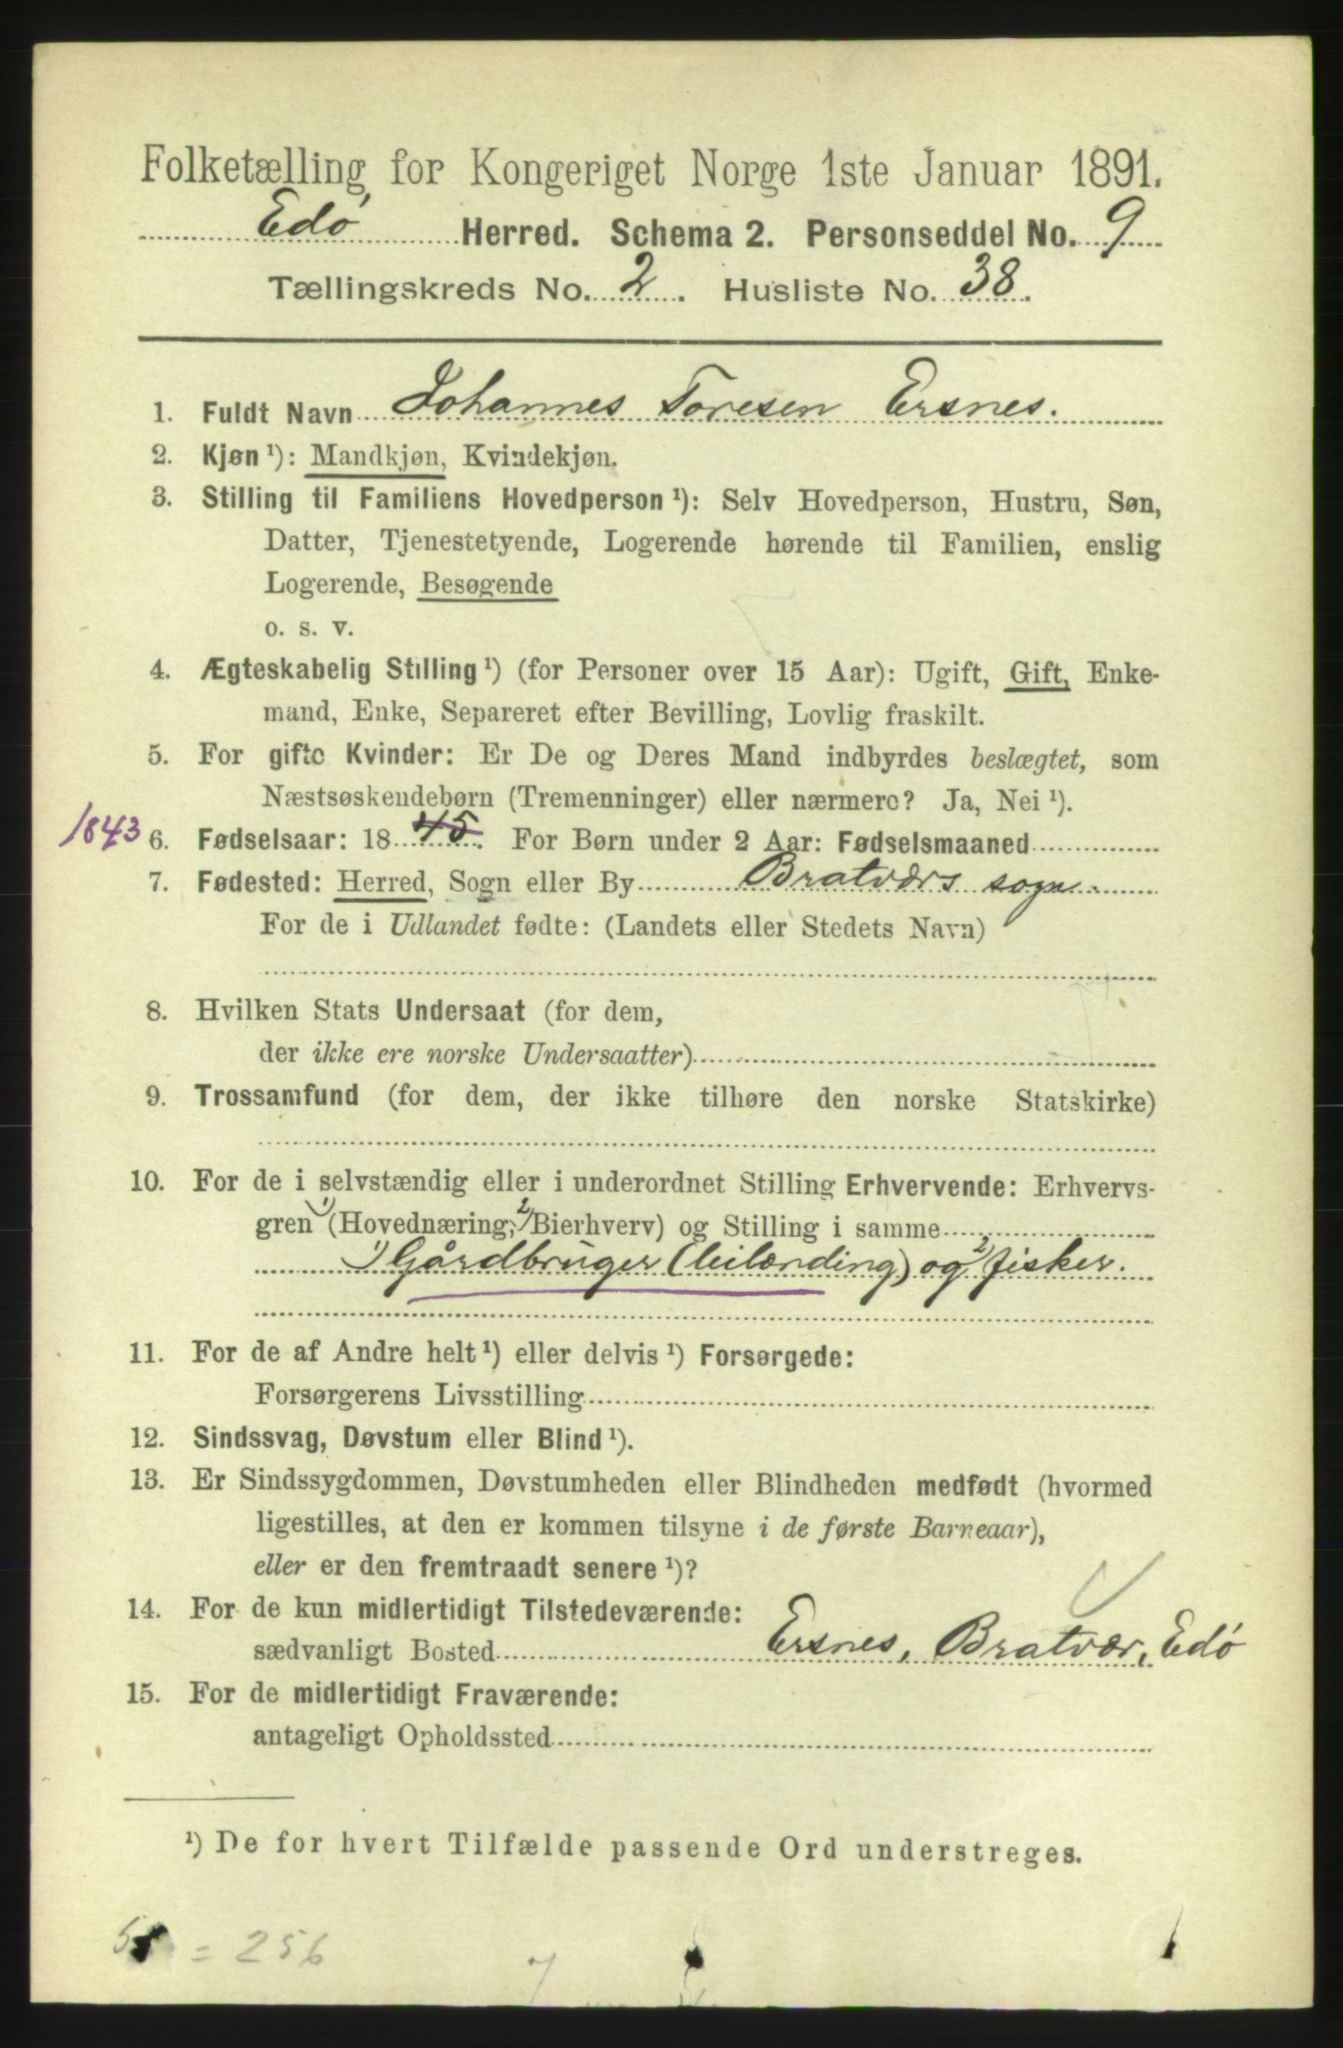 Folketælling for Kongeriget Norge 1ste Januar 1891.
Edø Herred. Schema 2. Personseddel No. 9
Tællingskreds No. 2. Husliste No. 38.
1. Fuldt Navn Johannes Toresen Ersnes.
2. Kjøn ¹): Mandkjøn, Kvindekjøn.
3. Stilling til Familiens Hovedperson ¹): Selv Hovedperson, Hustru, Søn,
Datter, Tjenestetyende, Logerende hørende til Familien, enslig
Logerende, Besøgende
o. s. v.
4. Ægteskabelig Stilling ¹) (for Personer over 15 Aar): Ugift, Gift, Enke-
mand, Enke, Separeret efter Bevilling, Lovlig fraskilt.
5. For gifte Kvinder: Er De og Deres Mand indbyrdes beslægtet, som
Næstsøskendebørn (Tremenninger) eller nærmere? Ja, Nei ¹).
1843 6. Fødselsaar: 18 45. For Børn under 2 Aar: Fødselsmaaned
7. Fødested: Herred, Sogn eller By Bratværs sogn.
For de i Udlandet fødte: (Landets eller Stedets Navn)
8. Hvilken Stats Undersaat (for dem,
der ikke ere norske Undersaatter)
9. Trossamfund (for dem, der ikke tilhøre den norske Statskirke)
10. For de i selvstændig eller i underordnet Stilling Erhvervende: Erhvervs-
gren 1) (Hovednæring, 2) Bierhverv) og Stilling i samme
1) Gårdbruger (leilænding) og 2) fisker.
11. For de af Andre helt ¹) eller delvis ¹) Forsørgede:
Forsørgerens Livsstilling
12. Sindssvag, Døvstum eller Blind ¹).
13. Er Sindssygdommen, Døvstumheden eller Blindheden medfødt (hvormed
ligestilles, at den er kommen tilsyne i de første Barneaar),
eller er den fremtraadt senere ¹)?
14. For de kun midlertidigt Tilstedeværende:
sædvanligt Bosted Ersnes, Bratvær, Edø
15. For de midlertidigt Fraværende:
antageligt Opholdssted
¹) De for hvert Tilfælde passende Ord understreges.
= 256
7